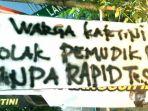 WARGA KARTINI
OLAK PEMUDIK
ANPA RAPID TES
TINI